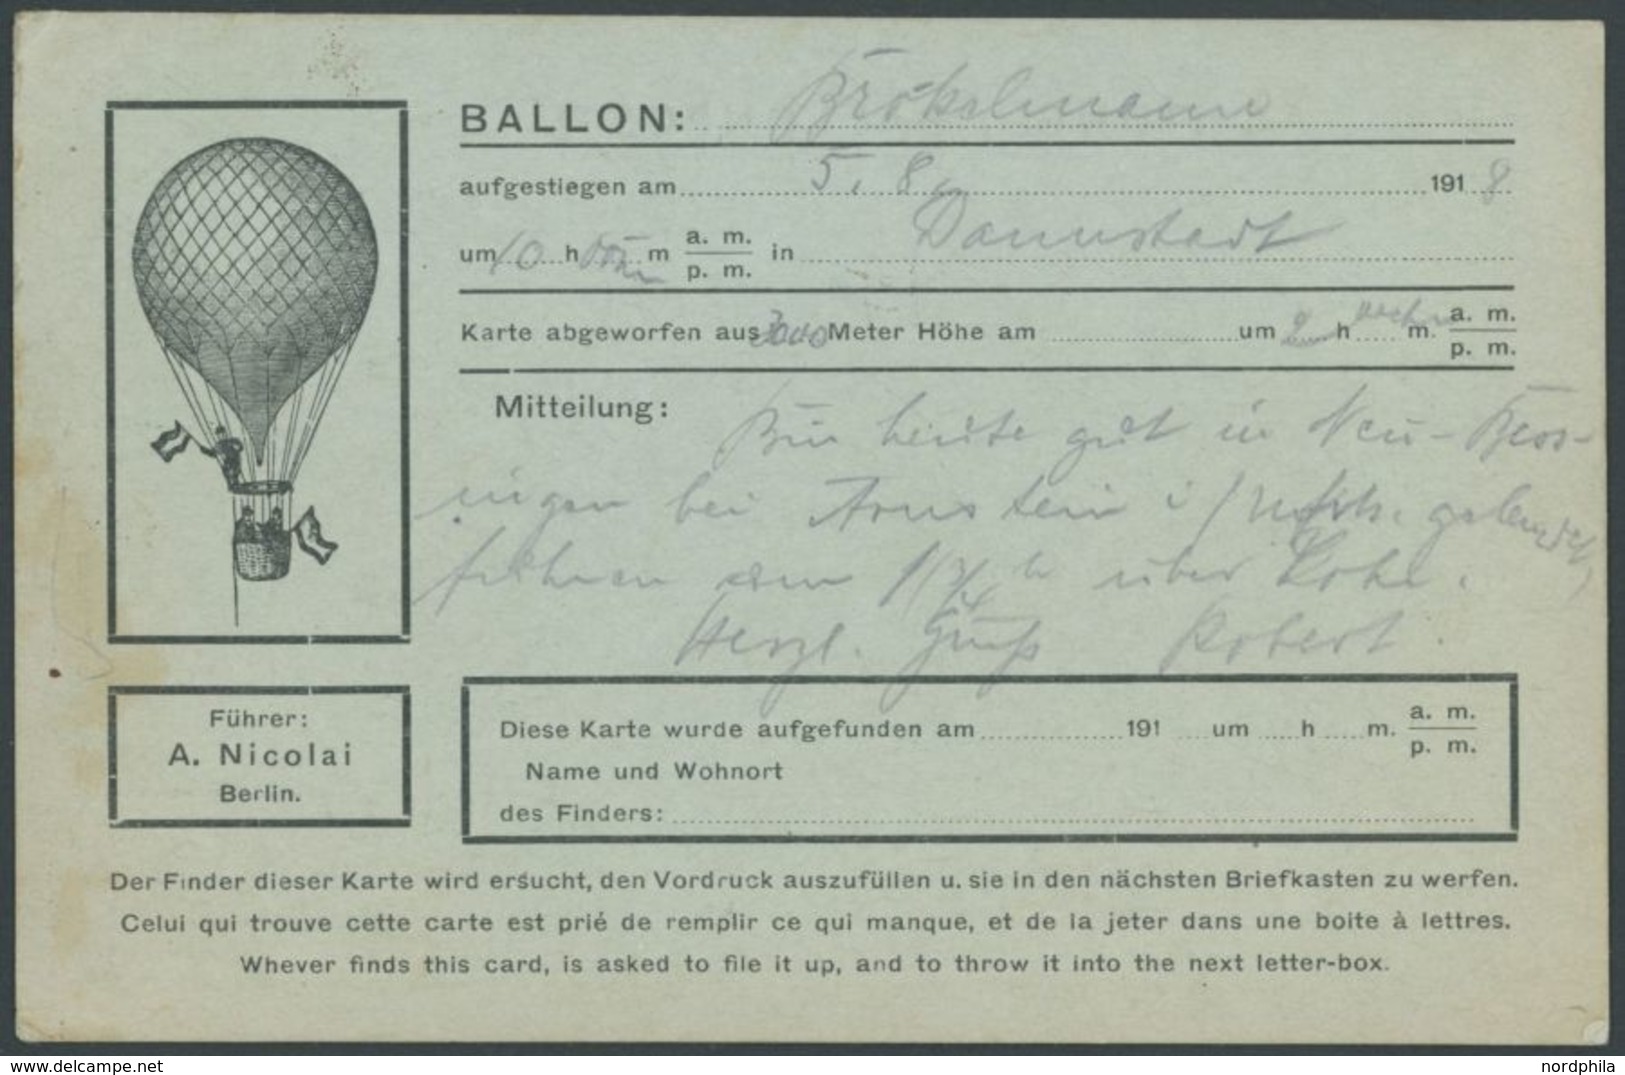 BALLON: Brökelmann
aufgestiegen am 5. 8. 1918
um 10 h m a. m. p. m. in Darmstadt
Karte abgeworfen aus 3000 Meter Höhe am um 2 h m. a. m. p. m.
Mitteilung:
Bin heute gut in Neu-Bess-
ingen bei Arnstein i/ gelandet,
fuhren um 1 3/4 h über Lohr.
Herzl. Gruß Robert.
Führer:
A. Nicolai
Berlin.
Diese Karte wurde aufgefunden am 191 um h m. a. m. p. m.
Name und Wohnort
des Finders:
Der Finder dieser Karte wird ersucht, den Vordruck auszufüllen u. sie in den nächsten Briefkasten zu werfen.
Celui qui trouve cette carte est prié de remplir ce qui manque, et de la jeter dans une boite à lettres.
Whever finds this card, is asked to file it up, and to throw it into the next letter-box.
delcampe.net
nordphila